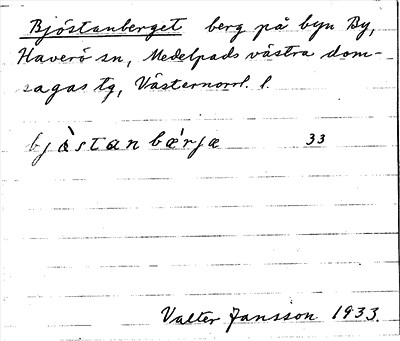 Bjóstanberget berg på byn By,
Haverö sn, Medelpads västra dom-
sagas tg, Västernorrl. l.
bjɑ̀stanbæ̀rjæ 33
Valter Jansson 1933.